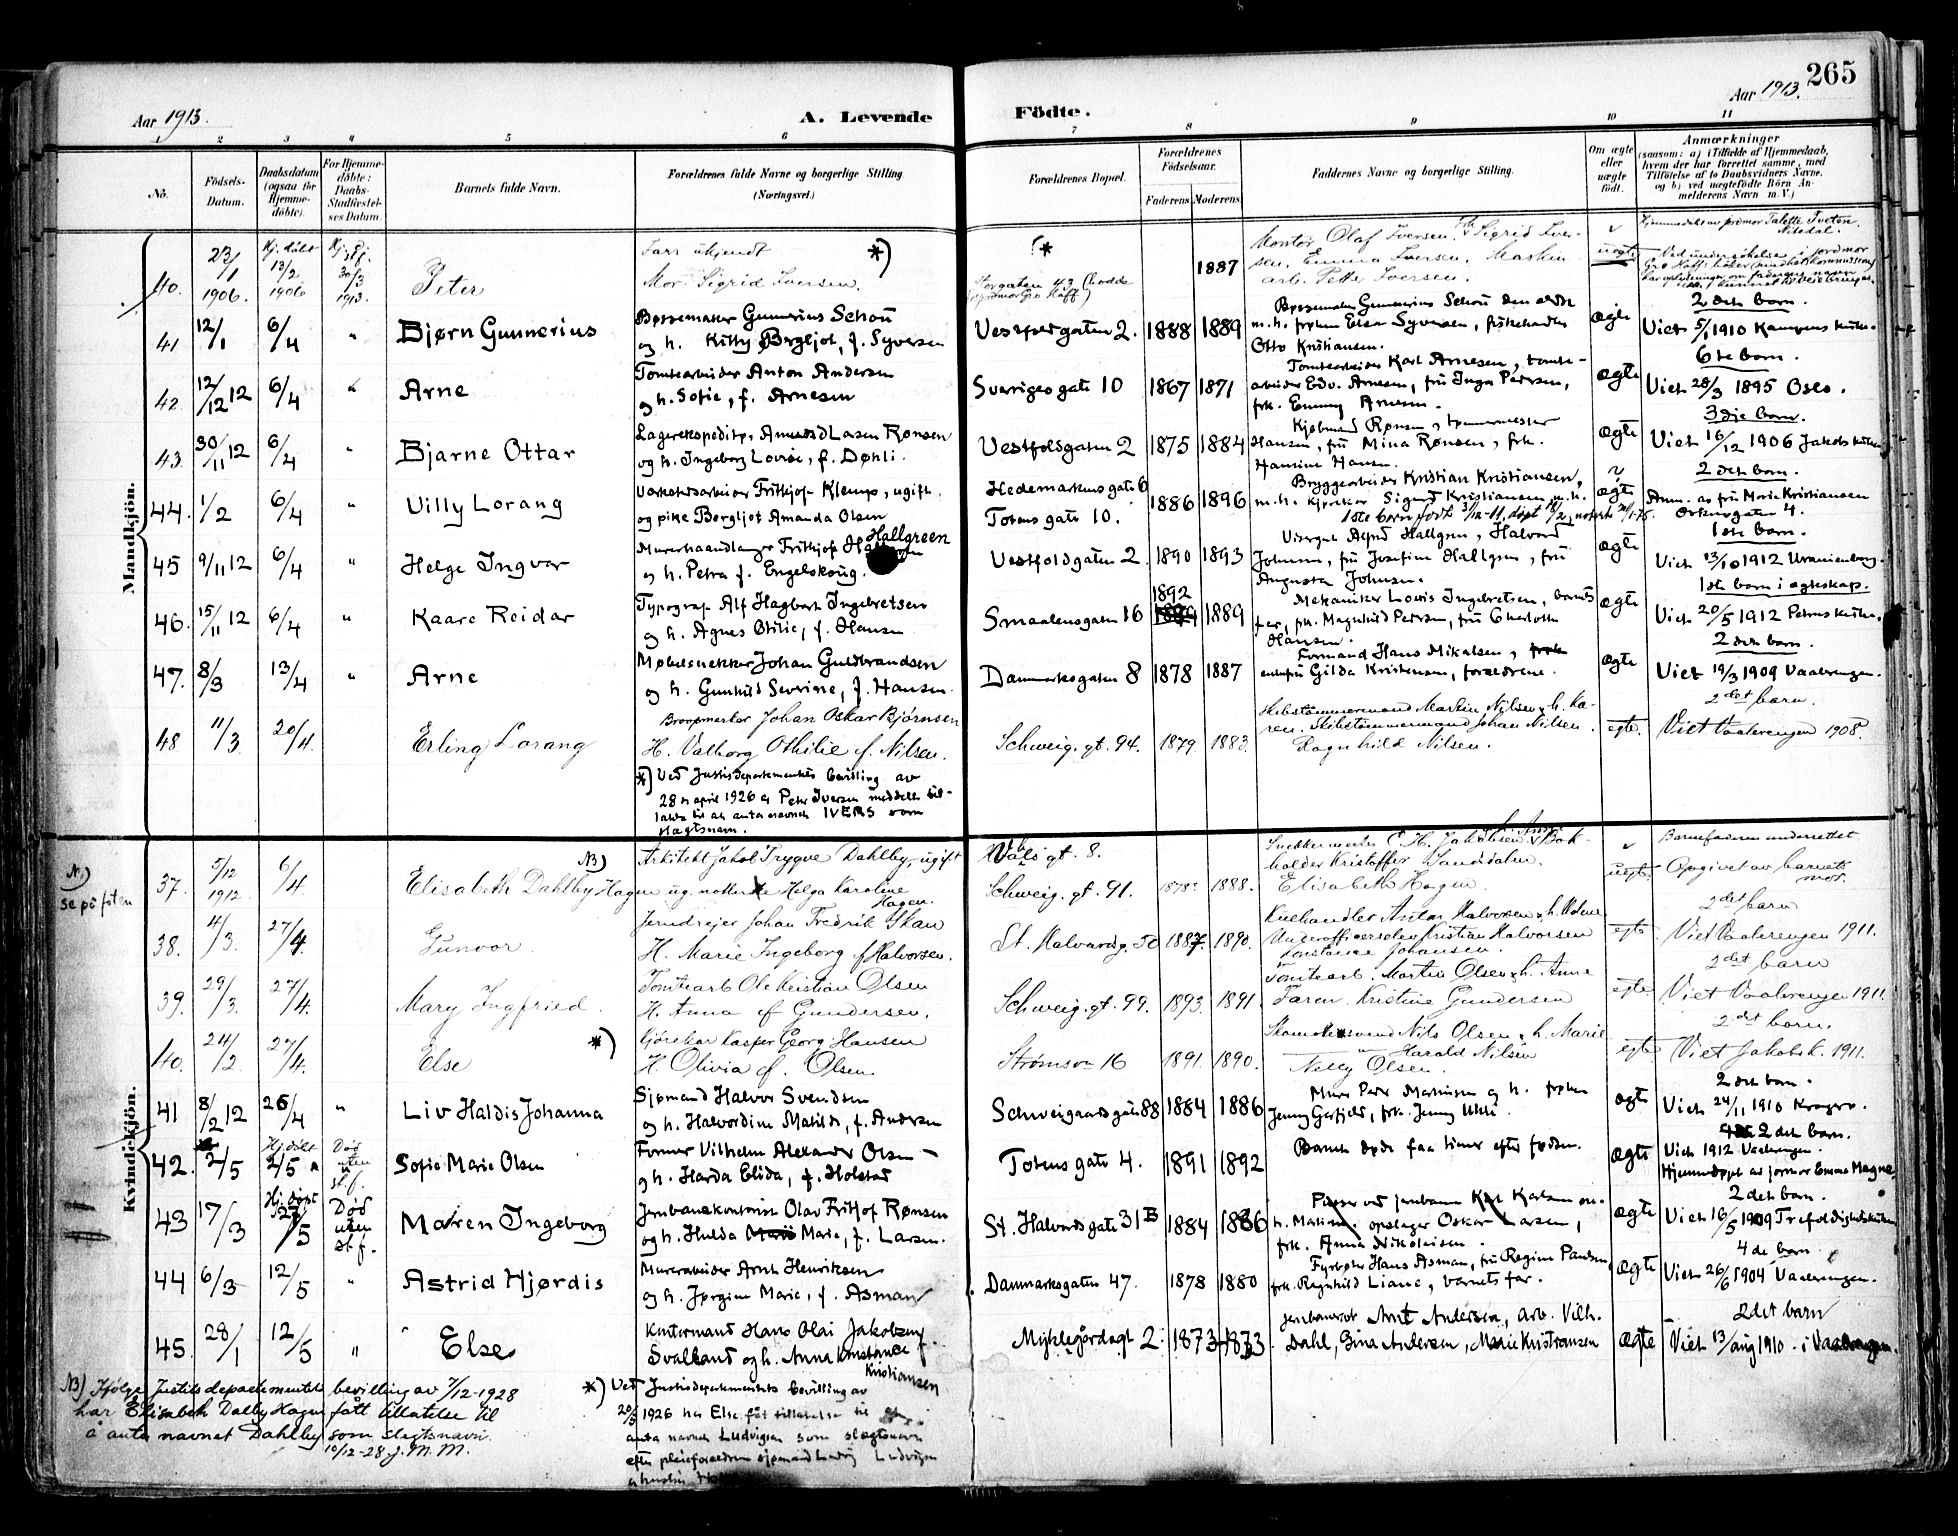 265
Aar 1913.
A. Levende
Födte.
Aar 1913.
1 2 3 4 5 6 7 8 9 10 11
No.
Födsels-Datum.
Daabsdatum (ogsaa för Hjemme-döbte).
For Hjemme-döbte: Daabs-Stadfæstel-ses Datum.
Barnets fulde Navn.
Forældrenes fulde Navne og borgerlige Stilling (Næringsvei.)
Forældrenes Bopæl.
Forældrenes Födselsaar.
Faderens Moderens
Faddernes Navne og borgerlige Stilling.
Om ægte eller uægte födt.
Anmærkninger
(saasom: a) i Tilfælde af Hjemmedaab, hvem der har forrettet samme, med Tilföielse af to Daabsvidners Navne, og b) ved uægtefödte Börn Anmelderens Navn m. V.)
Mandkjön.
40. 23/1 1906. Hj. döbt 13/2 1906 30/3 1913. Peter
Far ukjendt *)
Mor: Sigrid Iversen.
Storgaten 43 1887
Kontor Olaf Iversen, Sigrid Iversen, Emma Iversen, Maskinarb. Petter Iversen.
uægte
41 12/1 6/4 " Bjørn Gunnerius
Bøssemaker Gunnerius Schou
og h. Kitty Bergljot, f. Syversen
Vestfoldgaten 2. 1888 1889
Bøssemaker Gunnerius Schou den ældre
m. h. frøken Elsa Syversen, fiskehandler
Otto Kristiansen.
ægte
2 det barn.
Viet 5/1 1910 Kampens kirke.
42. 12/12 12 6/4 " Arne
Tomtearbeider Anton Andersen
og h. Sofie, f. Arnesen
Sverigesgate 10 1867 1871
Tomtearbeider Karl Arnesen, tomte-
arbeider Edv. Arnesen, fru Inga Petersen,
frk. Emmy Arnesen.
ægte
6 te barn.
Viet 28/3 1895 Oslo.
43. 30/11 12 6/4 " Bjarne Ottar
Lagerekspeditør Amund Larsen Rønsen
og h. Ingeborg Lovise, f. Døhli.
Vestfoldgaten 2 1875 1884
Kjøbmand Rønsen,
Hansen, fru Mina Rønsen, frk.
Hansine Hansen.
ægte
3 die barn.
Viet 16/12 1906 Jakobs kirke
44. 1/2 6/4 " Villy Lorang
Verkstedsarbeider Frithjof Klemp, ugift,
og pike Borgljot Amanda Olsen
Hedemarkens gate 6
Totens gate 10. 1886 1896
Bryggearbeider Kristian Kristiansen,
m. h. kjørekar Sigurd Kristiansen m. h.
ægte
2 det barn.
Anm. av fru Marie Kristiansen
Orknøgaten 4.
45 9/11 12 6/4 " Helge Ingvar
Murerhaandlanger Frithjof Hallgreen
og h. Petra f. Engelskoug.
Vestfoldgaten 2 1890 1893
Visergut Alfred Hallgren, Halvord
Johnsen, fru Josefine Hallgren, fru
Augusta Johnsen.
ægte
1 ste barn.
Viet 13/10 1912 Uranienborg.
46. 15/11 12 6/4 " Kaare Reidar
Typograf Alf Hagbart Ingebretsen
og h. Agnes Otilie, f. Hansen
Smaalensgaten 16 1892 1889
Mekaniker Lovis Ingebretsen, barnets
far, frk. Magnhild Petersen, fru Charlotte
Hansen.
ægte
1 ste barn i egteskap.
Viet 20/5 1912 Petrus kirke.
47. 8/3 13/4 " Arne
Møbelsnekker Johan Guldbrandsen
og h. Gunhild Severine, f. Hansen.
Danmarksgaten 8 1878 1887
Formand Hans Mikalsen,
enkefru Gilda Kristensen, forældrene.
ægte
2 det barn.
Viet 19/3 1909 Vaalerengen.
48 11/3 20/4. Erling Lorang
Broopmerker Johan Oskar Bjørnsen
H. Valborg Othilie f. Nilsen.
Schweig. gt. 94. 1879. 1883.
Skibstømmermand Martin Nilsen, h. Karen. Skibstømmermand Johan Nilsen.
Ragnhild Nilsen.
egte.
2det barn.
Viet Vaalerengen 1908.
*) Ved Justisdepartementets bevilling av
28 de april 1926 er Peter Iversen meddelt til-
latelse til at anta navnet IVERS som
slægtsnavn.
Kvindekjön.
N.)
se på foten
37. 5/12 1912 6/4. Elisabeth Dahlby Hagen NB)
Arkitekt Jakob Trygve Dahlby, ugift
og Helga Karoline Hagen.
Vals gt. 8.
Schweig. gt. 91. 1878? 1888.
Snekkermester E. H. Jakobsen, Bok-
holder Kristoffer Sandsdalen.
Elisabeth Hagen.
uegte
Barnefaderen underrettet
Opgivet av barnets mor.
38. 4/3. 27/4. Gunvor
Jerndreier Johan Fredrik Skau
H. Marie Ingeborg f. Halvorsen.
St. Halvardsg. 50 1887 1890.
Kulhandler Anton Halvorsen
Underofficerselev Kristian Halvorsen
Johansen.
egte
2det barn
Viet Vaalerengen 1911.
39. 29/3. 27/4. Mary Ingfried.
Tomtearb Ole Kristian Olsen
H. Anna f. Gundersen.
Schweig. gt. 99. 1893. 1891
Tomtearb. Martin Olsen, h. Anne
Karen. Kristine Gundersen
egte.
2det barn
Viet Vaalerengen 1911.
40. 24/2. 27/4. Else *)
Kjørekar Kasper Georg Hansen
H. Olivia f. Olsen
Strømsv 16 1891. 1890.
Skomakersvend Nils Olsen, h. Marie
Harald Nilsen
Nelly Olsen.
egte
2det barn.
Viet Jakobsk. 1911.
41 8/2 12 26/4 " Liv Haldis Johanna
Sjømand Halvor Svendsen
og h. Halvordine Matilde, f. Andersen
Schweigaardsgate 88 1884 1886
Murer Peder Martinsen og h. frøken
Jenny Gerfjeld, frk. Jenny
ægte
2 det barn.
Viet 24/11 1910 Kragerø.
42. 2/5 Hj. døbt 2/5 Død uten st. f. Sofie Marie Olsen
Former Vilhelm Alexander Olsen
og h. Harda Elida, f. Holstad
Totens gate 4. 1891 1892
Barnet døde faa timer efter fødsen.
ægte
2 det barn.
Viet 1912 Vaalerengen.
Hjemmedøpt av jormor Emma Magne
43 17/3 Hj. døpt 2/5 Død uten st. f. Maren Ingeborg
Jernbanekontorist Olav Frithjof Rønsen
og h. Hulda Marie, f. Larsen.
St. Halvards gate 31 B 1884 1886
Pusser ved jernbanen Karl Karlsen og
h. Marian, opslager Oskar Larsen,
frk. Anna Nikolaisen.
ægte
2 det barn.
Viet 16/5 1909 Trefoldighedskirken
44 6/3 12/5 " Astrid Hjørdis
Murerarbeider Arnt Henriksen
og h. Jørgine Marie, f. Asman
Danmarksgaten 47. 1878 1880
Fyrbøter Hans Asman, fru Regine Paulsen,
frk. Ragnhild Liane, barnets far.
ægte
4 de barn.
Viet 26/6 1904 Vaalerengen.
45. 28/1 12/5 " Else
Kontormand Hans Olai Jakobsen
Svalland og h. Anna Konstance f. Kristiansen
Myklegårdsgt 2. 1873 1873
Jernbanearb Arnt Andersen, Arb. Vilh.
Dahl, Gina Andersen, Marie Kristiansen
ægte
2det barn
Viet 13/aug 1910 i Vaalerengen.
NB) Ifølge Justisdepartementets bevilling av 7/12-1928
har Elisabeth Dalby Hagen fått tillatelse til
å anta navnet Dahlby som slegtsnavn.
10/12-28 J. M. M.
*) Ved Justisdepartementets bevilling av
20/5 1926 har Else fåt tillatelse til at
anta navnet Ludvigsen som slægtsnavn
efter pleieforældrene sjømand Ludvig Ludvigsen
og hustru